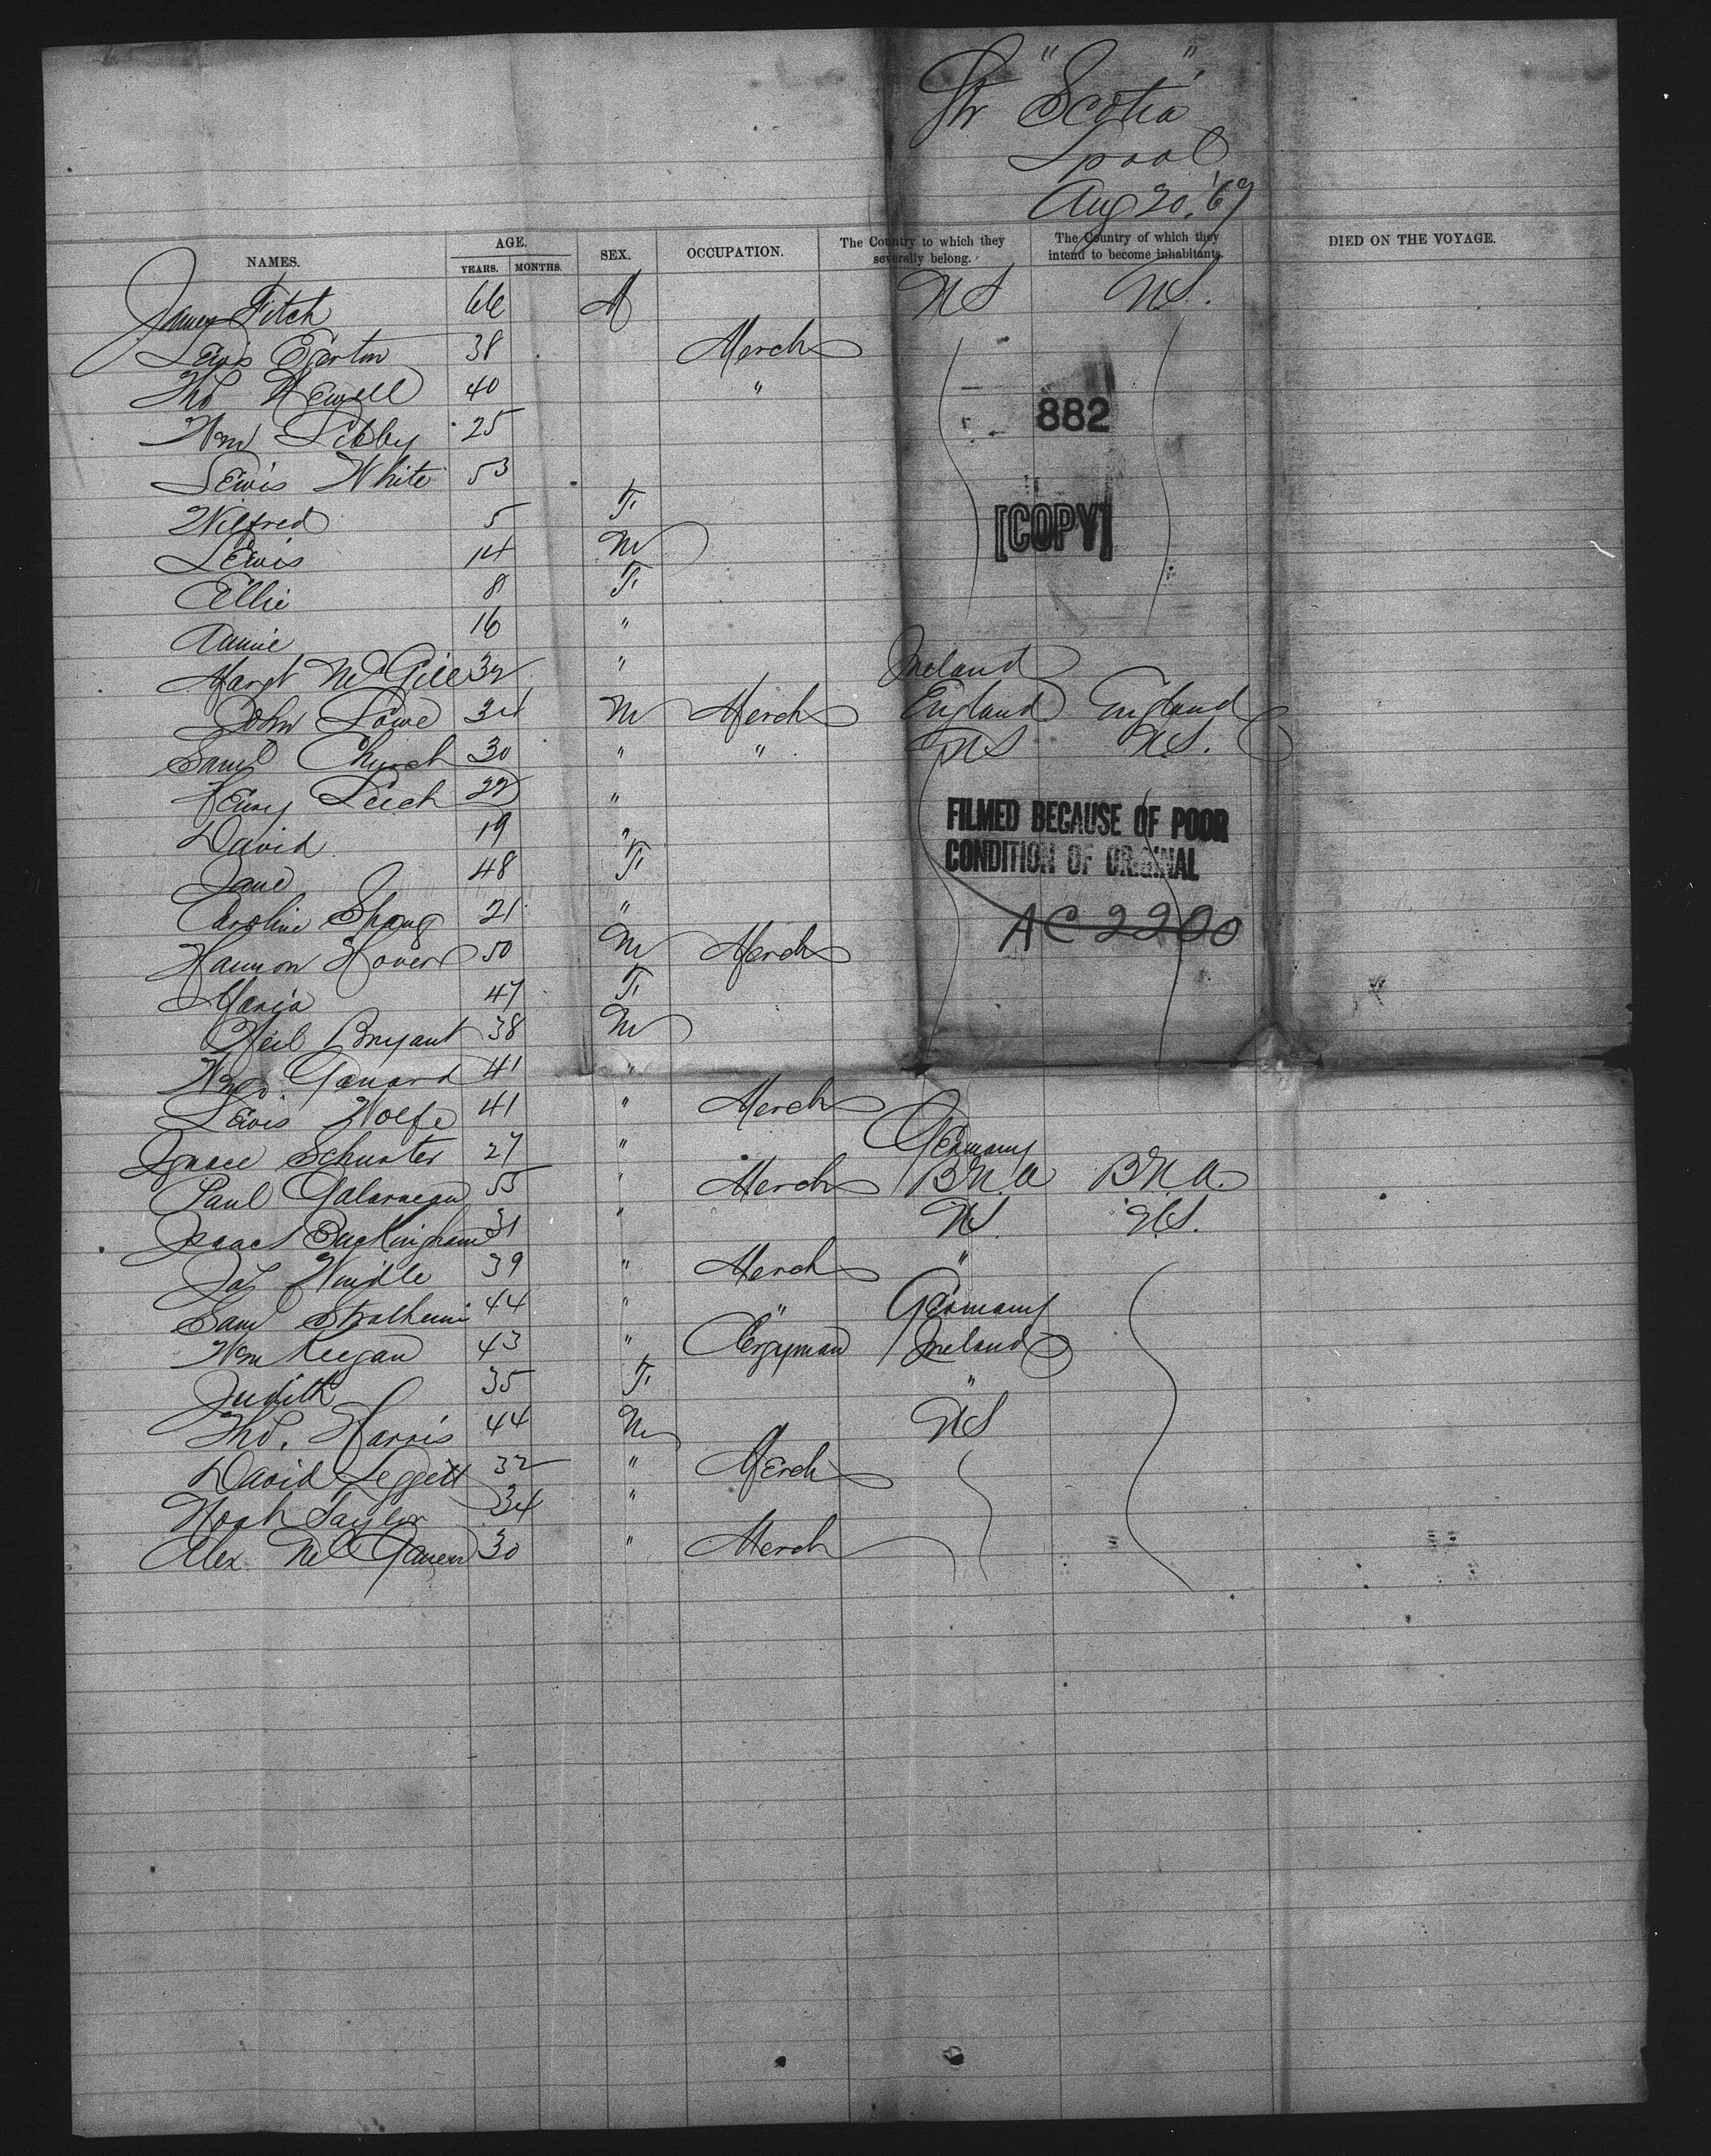 Str "Scotia"
Lpool
Aug 20, '67
NAMES. AGE. YEARS. MONTHS. SEX. OCCUPATION. The Country to which they severally belong. The Country of which they intend to become inhabitants. DIED ON THE VOYAGE.
James Fitch 66 M US US.
Lewis 38 Merch
Thos Newell 40 "
Wm Libby 25
882
Lewis White 53
Wilfred 5 F
[COPY]
Lewis 14 M
Ellie 8 F
Annie 16 "
Margt McGill 32 " Ireland
John Lowe 34 M Merch England England
Saml Church 30 " " US U.S.
Henry Leech 22 "
FILMED BECAUSE OF POOR
David 19 "
CONDITION OF ORIGINAL
Jane 48 F
Caroline Spang 21 "
AC 2200
Hamon Hover 50 M Merch
Maria 47 F
Neil Bryant 38 M
Wm 41 "
Lewis Wolfe 41 " Merch
Ignace Schuster 27 " Germany
Paul Galarneau 55 " Merch B.N.A B.N.A.
Isaac Buckingham 31 " US. U.S.
Jas Windle 39 " Merch "
Saml 44 " " Germany
Wm Keegan 43 " Clergyman Ireland
Judith 35 F "
Thos. Harris 44 M US
David Leggett 32 " Merch
Noah Taylor 34 "
Alex Mc 30 " Merch